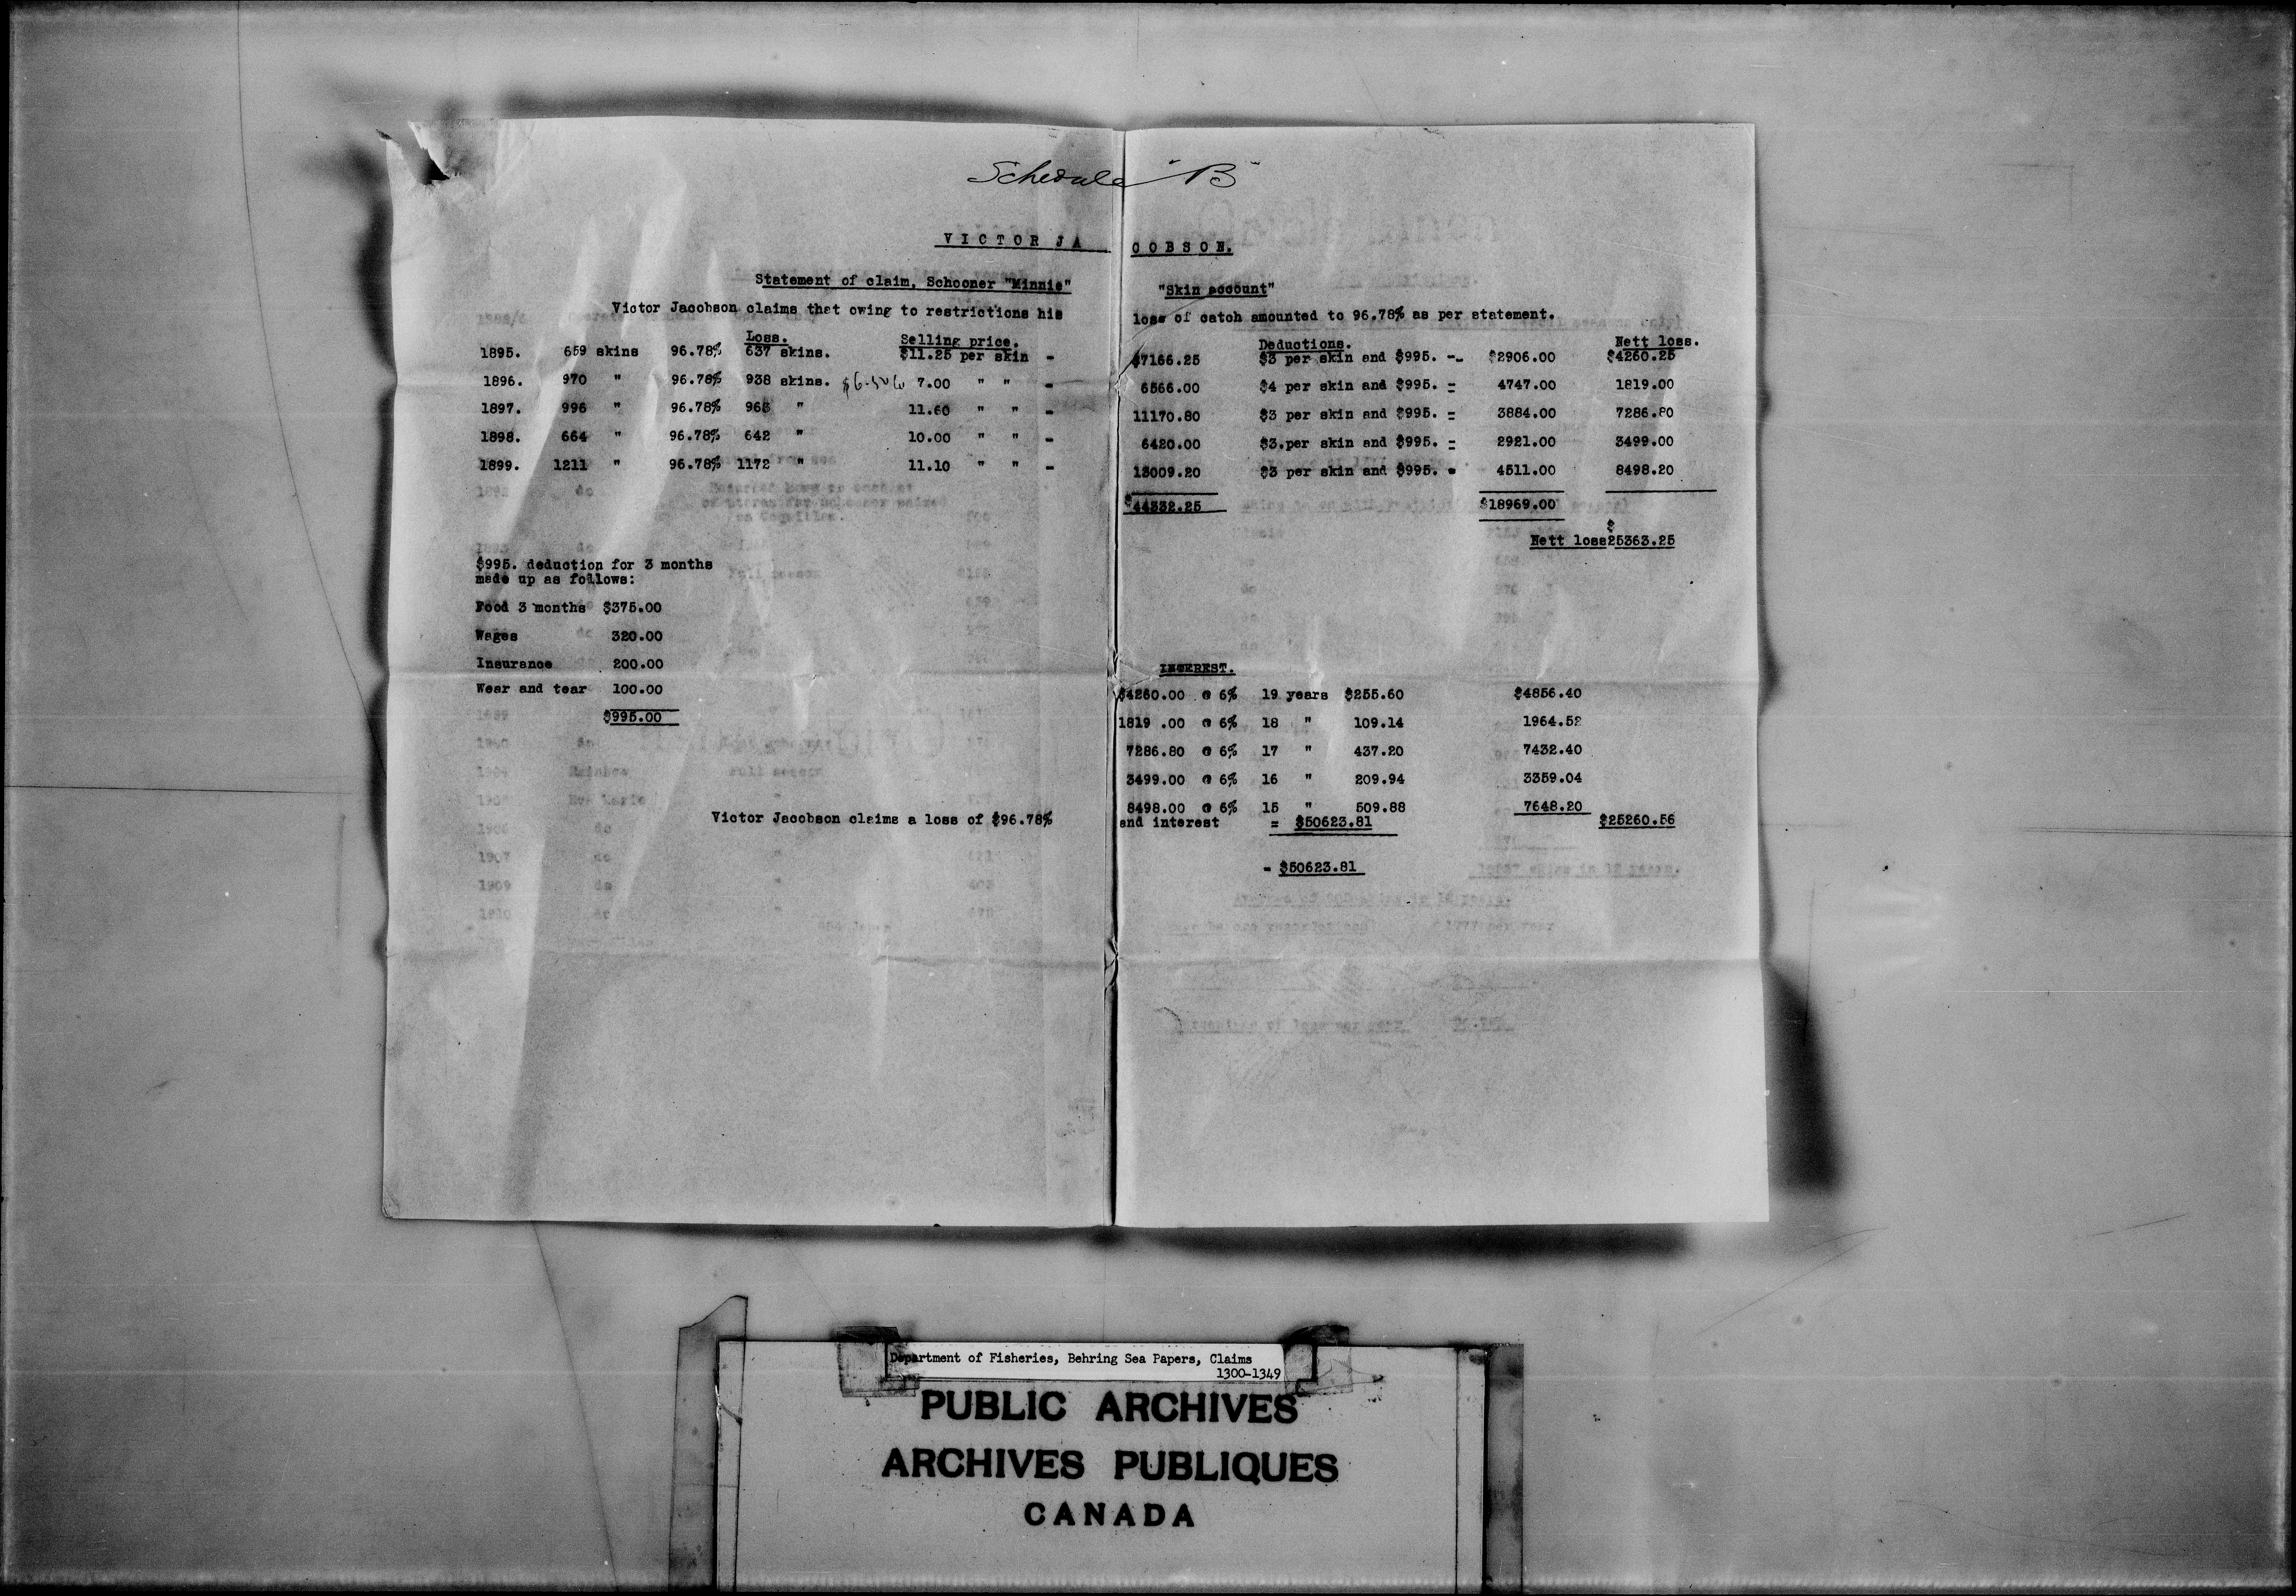 Schedule "B"
VICTOR JACOBSON.
Statement of claim, Schooner "Minnie" "Skin account"
Victor Jacobson claims that owing to restrictions his loss of catch amounted to 96.78% as per statement.
Loss. Selling price. Deductions. Nett loss.
1895. 659 skins 96.78% 637 skins. $11.25 per skin - $7166.25 $3 per skin and $995. -- $2906.00 $4260.25
1896. 970 " 96.78% 938 skins. 7.00 " " - 6566.00 $4 per skin and $995. = 4747.00 1819.00
1897. 996 " 96.78% 963 " 11.60 " " - 11170.80 $3 per skin and $995. = 3884.00 7286.80
1898. 664 " 96.78% 642 " 10.00 " " - 6420.00 $3.per skin and $995. = 2921.00 3499.00
1899. 1211 " 96.78% 1172 " 11.10 " " - 13009.20 $3 per skin and $995. = 4511.00 8498.20
$44332.25 $18969.00
Nett loss $25363.25
$995. deduction for 3 months
made up as follows:
Food 3 months $375.00
Wages 320.00
Insurance 200.00
Wear and tear 100.00
$995.00
INTEREST.
$4260.00 @ 6% 19 years $255.60 $4856.40
1819 .00 @ 6% 18 " 109.14 1964.52
7286.80 @ 6% 17 " 437.20 7432.40
3499.00 @ 6% 16 " 209.94 3359.04
8498.00 @ 6% 15 " 509.88 7648.20
Victor Jacobson claims a loss of $96.78% and interest = $50623.81 $25260.56
- $50623.81
Department of Fisheries, Behring Sea Papers, Claims
1300-1349
PUBLIC ARCHIVES
ARCHIVES PUBLIQUES
CANADA